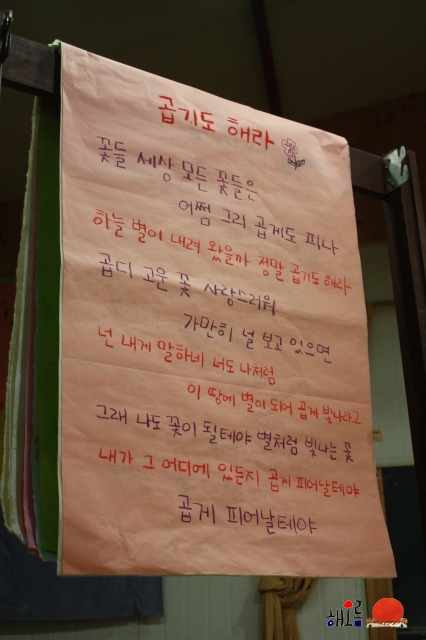 곱기도 해라
꽃들 세상 모든 꽃들은
어쩜 그리 곱게도 피나
하늘 별이 내려 왔을까 정말 곱기도 해라
곱디 고운 꽃 사랑스러워
가만히 널 보고 있으면
넌 내게 말하네 너도 나처럼
이 땅에 별이 되어 곱게 빛나라고
그래 나도 꽃이 될테야 별처럼 빛나는 꽃
내가 그 어디에 있든지 곱게 피어날테야
곱게 피어날테야
해오름